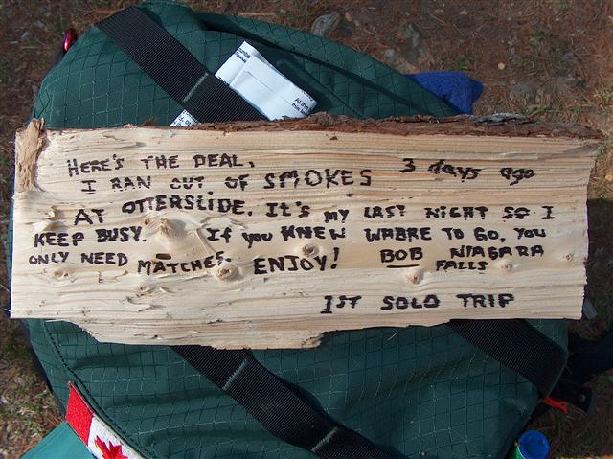 HERE'S THE DEAL,
I RAN OUT OF SMOKES 3 days ago
AT OTTERSLIDE. IT'S my LAST NIGHT SO I
KEEP BUSY. If you KNEW WHERE TO GO, YOU
ONLY NEED MATCHES. ENJOY! BOB NIAGARA
FALLS
1ST SOLO TRIP